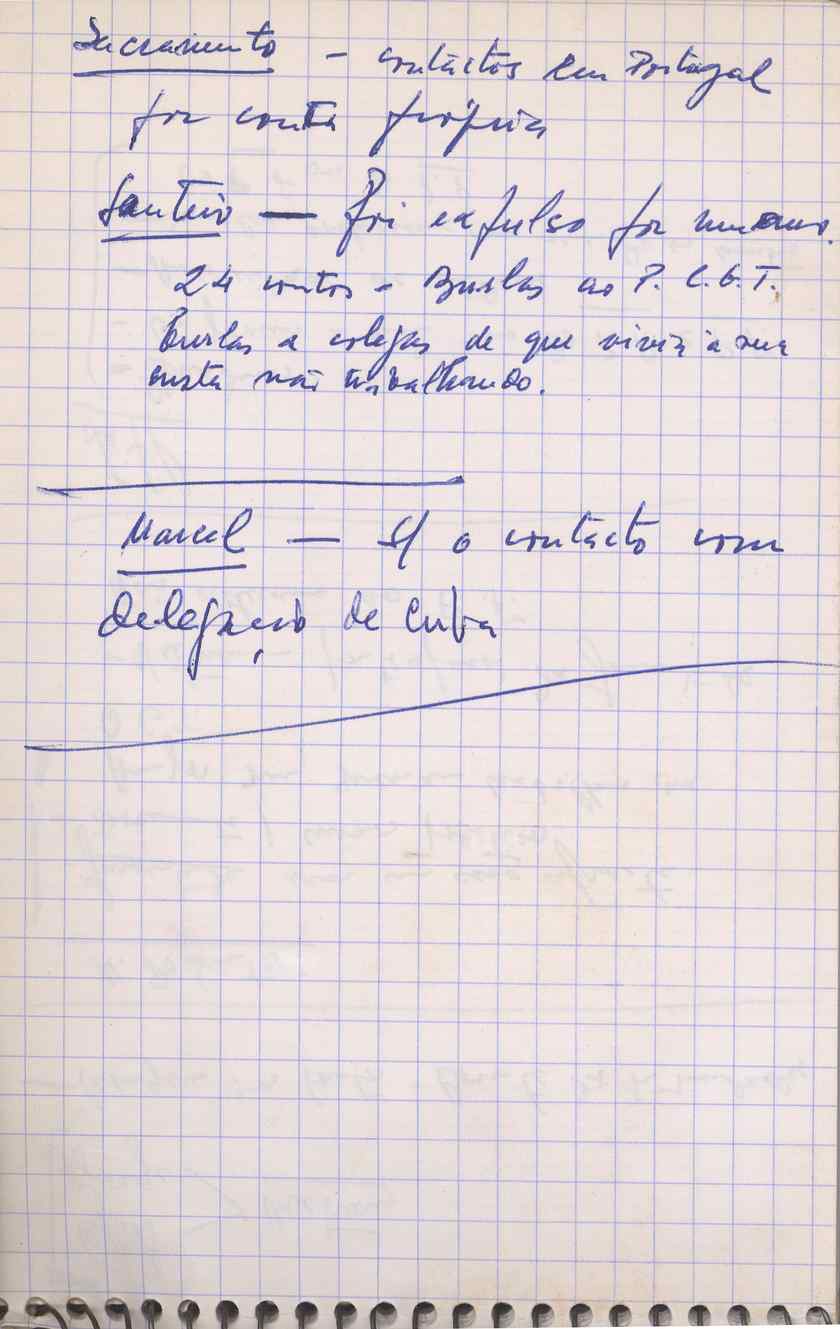 Sacramento - contactos em Portugal
por conta própria
Santeiro — Foi expulso por
24 contos - Burlas ao P. C. G. T.
Burlas a colegas de que vivia à sua
custa não trabalhando.
Marcel — S/ o contacto com
delegação de Cuba